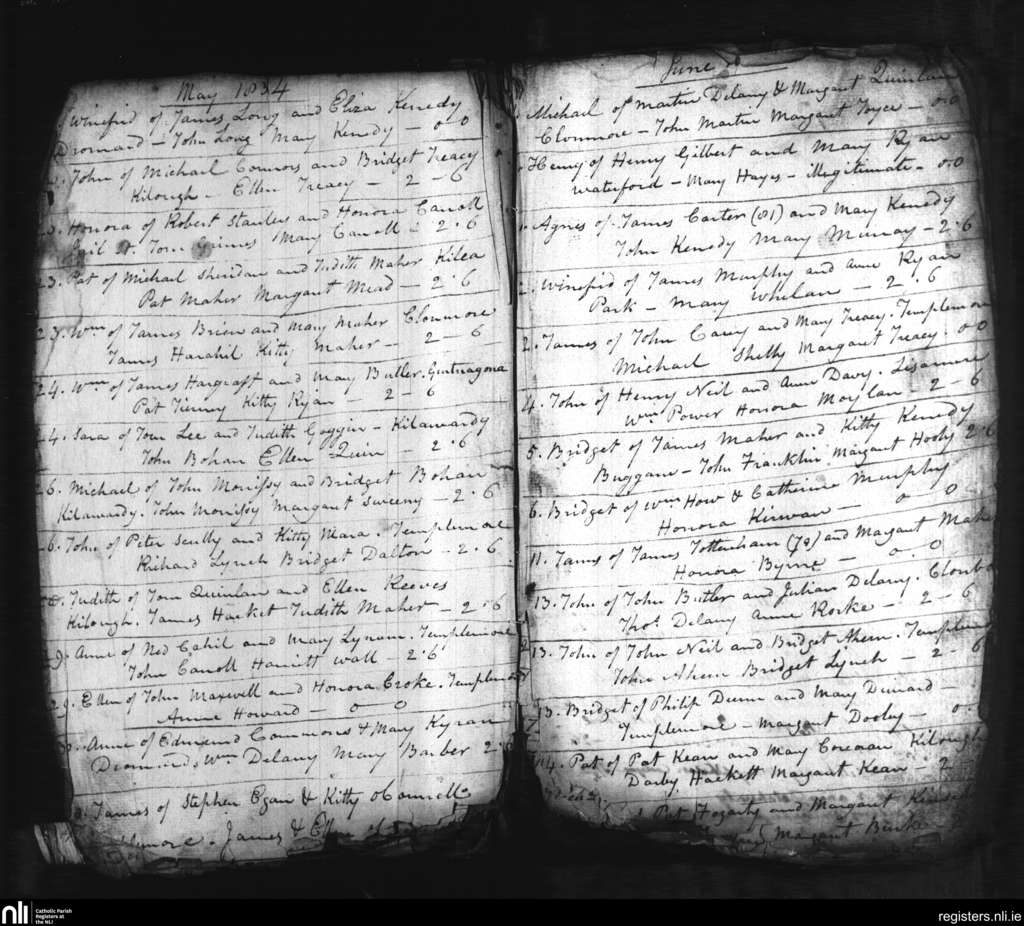 May 1834
Winefrid of James Long and Eliza Kenedy
Dromard - John Long Mary Kenedy - 0 0
John of Michael Connors and Bridget Treacy
Kilough - Ellen Treacy - 2 - 6
Honora of Robert Stanless and Honora Carroll
Jail St. Tom Grimes Mary Carroll - 2.6
23. Pat of Michael Sheridan and Judith Maher Kilea
Pat Maher Margaret Mead - 2.6
23. Wm of James Brien and Mary Maher Clonmore
James Harahil Kitty Maher - 2 - 6
24. Wm of James Hargraff and Mary Butler.
Pat Kitty Ryan - 2 - 6
24. Sara of Tom Lee and Judith Goggin - Kilawardy
John Bohan Ellen Quin - 2.6
26. Michael of John Morrissy and Bridget Bohan
Kilawardy. John Morrissy Margaret Sweeny - 2.6
26. John of Peter Scully and Kitty Mara. Templemore
Richard Lynch Bridget Dalton - 2.6
Judith of Tom Quinlan and Ellen Reeves
Kilough. James Hacket Judith Maher - 2.6
29. Anne of Ned Cahil and Mary Lynam. Templemore
John Carroll Harriitt Wall - 2.6
29. Ellen of John Maxwell and Honora Croke. Templemore
Anne Howard - 0 0
Anne of Edmund Commons & Mary Kyran
Dromard. Wm Delany Mary Barber 2.
James of Stephen Egan & Kitty oConnell
James & Ellen
June
Michael of Martin Delany & Margaret Quinlan
Clonmore - John Martin Margaret Joyce - 0.0
Henry of Henry Gilbert and Mary Ryan
Waterford - Mary Hayes - Illigitimate - 0.0
Agnes of James Carter (81) and Mary Kenedy
John Kenedy Mary Murray - 2.6
2. Winefrid of James Murphy and Anne Ryan
Park - Mary Whelan - 2.6
2. James of John Carey and Mary Treacy. Templemore
Michael Shelly Margaret Treacy. 0 0
4. John of Henry Neil and Anne Davy. Lisanure
Wm Power Honora Moylan - 2 - 6
5. Bridget of James Maher and Kitty Kenedy
Buggane - John Franklin Margaret Hooly 2.6
6. Bridget of Wm How & Catherine Murphy
Honora Kirwan - 0 0
11. James of James Tottenham (78) and Margaret Maher
Honora Byrne - 0.0
13. John of John Butler and Julian Delany.
Thos. Delany Anne Rorke - 2 - 6
13. John of John Neil and Bridget Ahern. Templemore
John Ahern Bridget Lynch - 2 - 6
13. Bridget of Philip Dunn and Mary
Templemore - Margaret Dooley - 0.
14. Pat of Pat Kean and Mary Corcoran Kilough
Darby Hackett Margaret Kean - 2
Pat Fogarty and Margaret
Margaret Burke
nli
Catholic Parish
Registers at
the NLI
registers.nli.ie